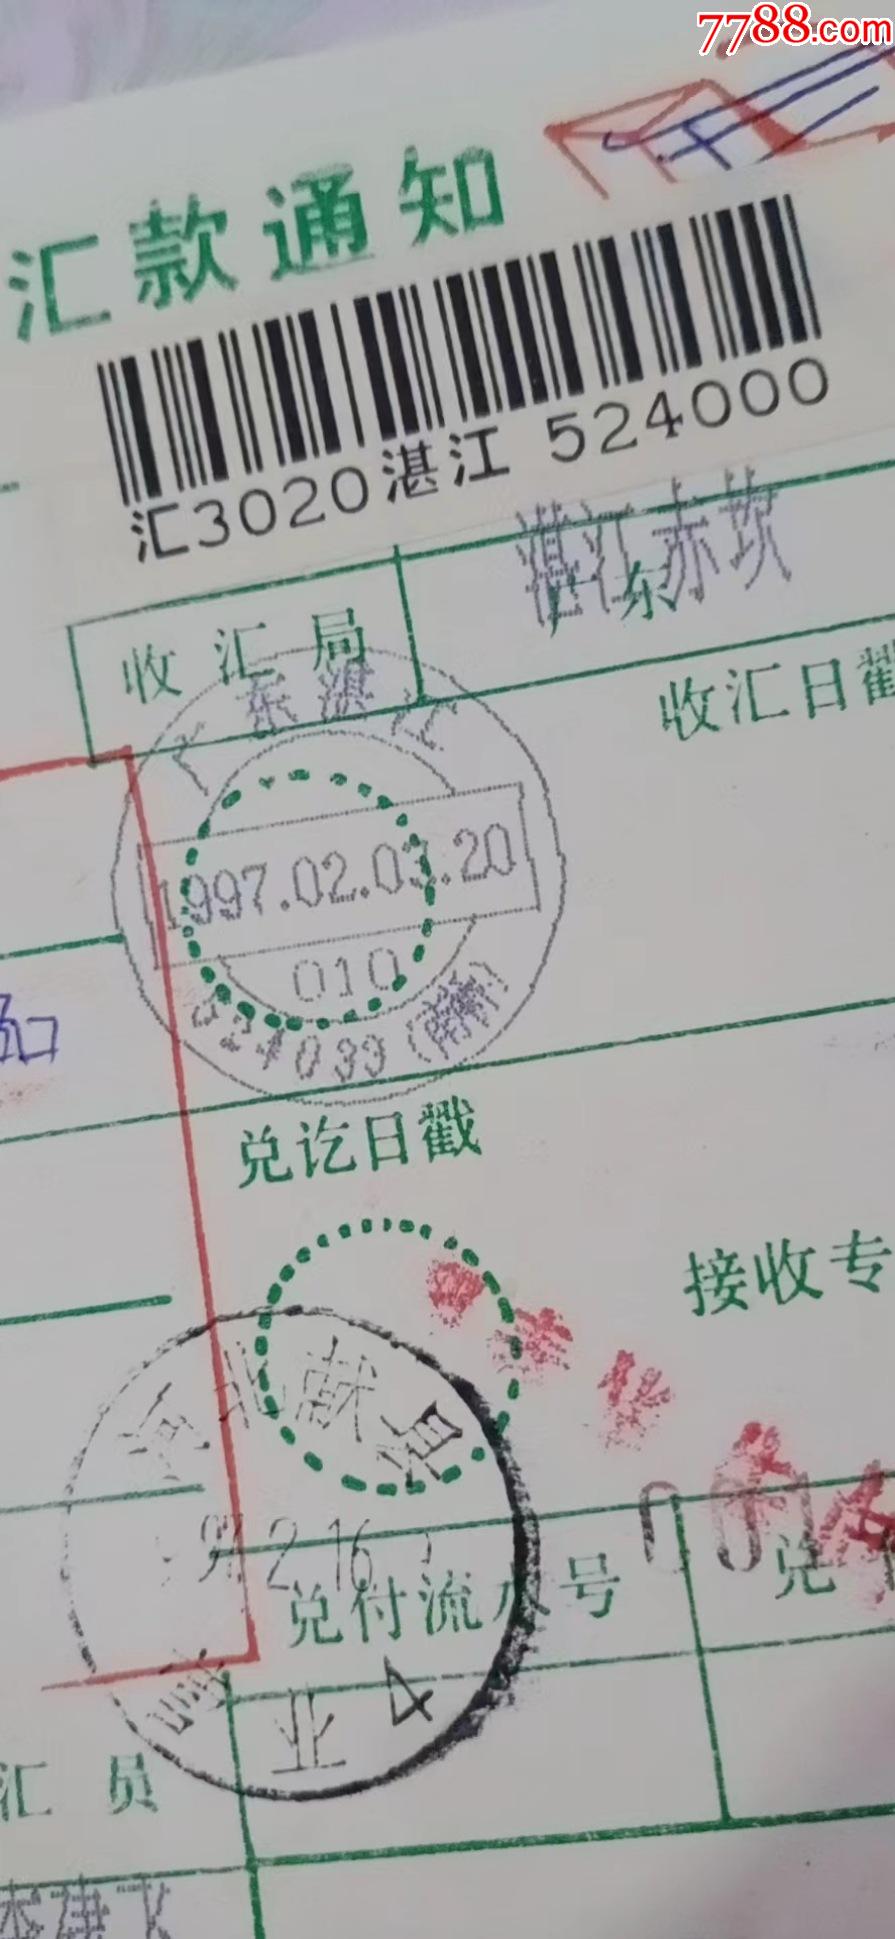 7788.com
汇款通知
汇3020湛江 524000
收汇局
湛江赤坎
广东
收汇日戳
广东湛江
1997.02.03.20
010
524033
兑讫日戳
接收专
河北献县
97.2.16
营业4
兑付流水号
001
兑
汇员
李建飞